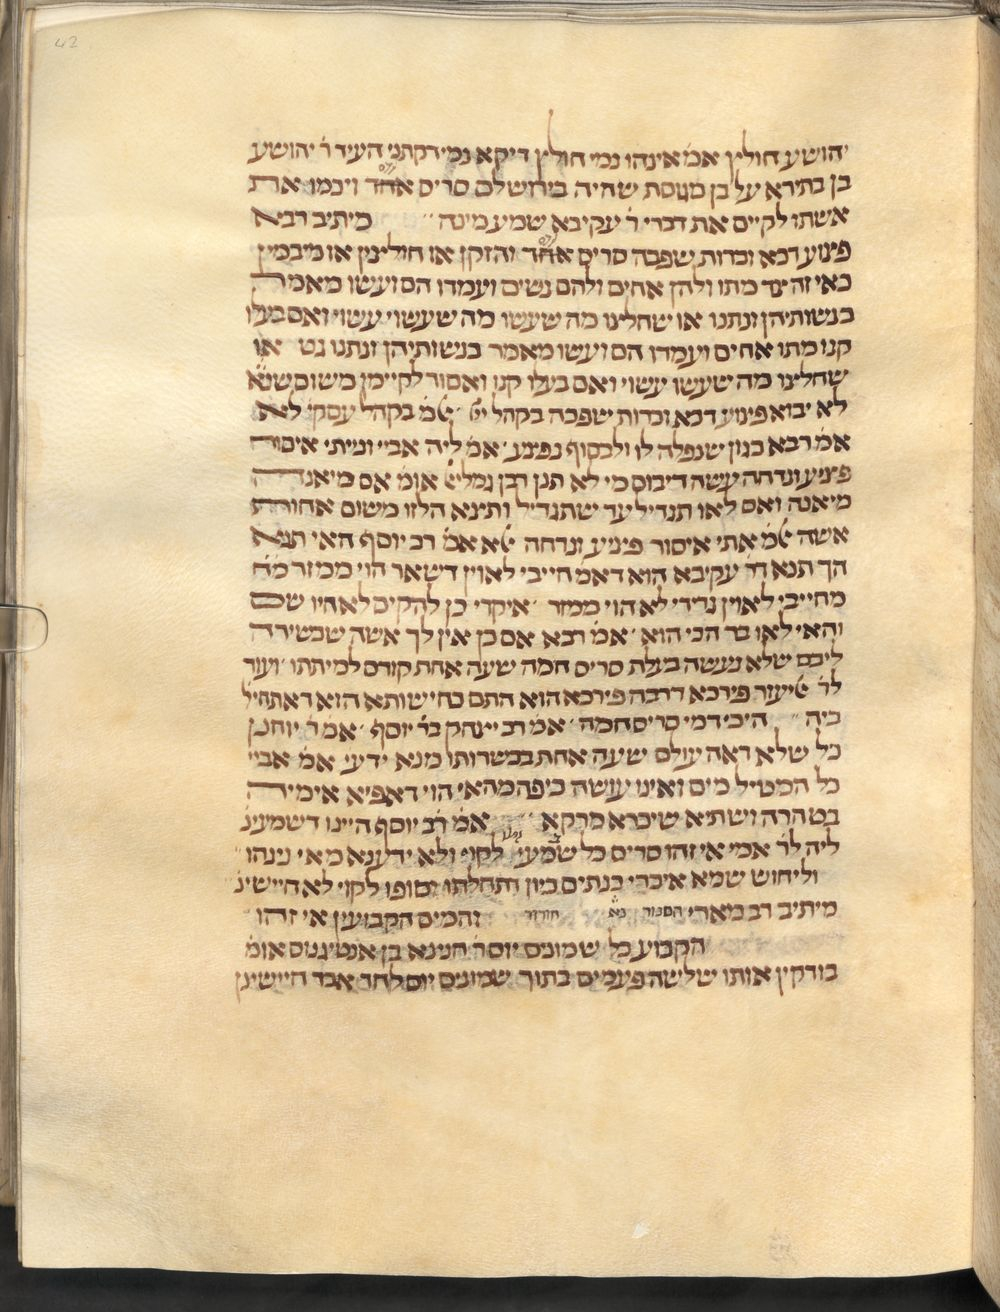 42
יהושע חולין אמ' אינהו נמי חולין דיקא נמי דקתני העיד ר' יהושע
בן בתירא על בן מגוסת שהיה בירושלם סריס אחד ויבמו את
אשתו לקיים את דברי ר' עקיבא שמע מינה כיתיב רבא
פצוע דכא וכרות שפכה סריס אחד והזקן או חולצין או מיבמין
כאי זה צד מתו ולהן אחים ולהם נשים ועמדו הם ועשו מאמר
בנשותיהן ונתנו או שחלצו מה שעשו מה שעשוי עשוי ואם בעלו
קנו מתו אחים ועמדו הם ועשו מאמר בנשותיהן ונתנו גט או
שחלצו מה שעשו עשוי ואם בעלו קנו ואסור לקיימן משום שנא'
לא יבוא פצוע דכא וכרות שפכה בקהל יי' אמ' בקהל עסקי' לא
אמ' רבא כגון שנפלה לו ולבסוף נפצע' אמ' ליה אביי וניתי איסור
פציע ונדחה עשה דיבום מי לא תנן רבן גמליא' אומ' אם מיאנה
מיאנה ואם לאו תגדיל עד שתגדיל ותיצא הלזו משום אחות
אשה אמ' אתי איסור פציע ונדחה אלא אמ' רב יוסף האי תנא
הך תנא דר' עקיבא הוא דאמ' מחייבי לאוין דשאר הוי ממזר מח
מחייבי לאוין גרידי לא הוי ממזר איקרי כן להקים לאחיו שם
והאי לאו בר הכי הוא' אמ' רבא אם כן אין לך אשה שכשירה
ליבם שלא נעשה בעלה סריס חמה שעה אחת קודם למיתתו ועוד
לר' אליעזר פירכא דרבה פירכא הוא התם כחישותא הוא דאתחיל
ביה היכי דמי סריס חמה' אמ' רב יצחק בר' יוסף' אמ' ר' יוחנן
כל שלא ראה עולם שעה אחת בכשרותו מנא ידעי' אמ' אביי
כל המטיל מים ואינו עושה כיפה מהאי הוי דאפיא אימיה
בטהרה ושתיא שיכרא מרקא אמ' רב יוסף היינו דשמענ'
ליה לר' אמי אי זהו סריס כל שממעי לקוי ולא ידענא מאי נינהו
וליחוש שמא איברי בנתים כיון דתחלתו וסופו לקוי לא חיישינ'
מיתיב רב מארי והמים הקבועין אי זהו
הקבוע כל שמונים יום ר' חנינא בן אנטיגנוס אומ'
בודקין אותו שלשה פעמים בתוך שמונים יום לחד אבר חיישינן